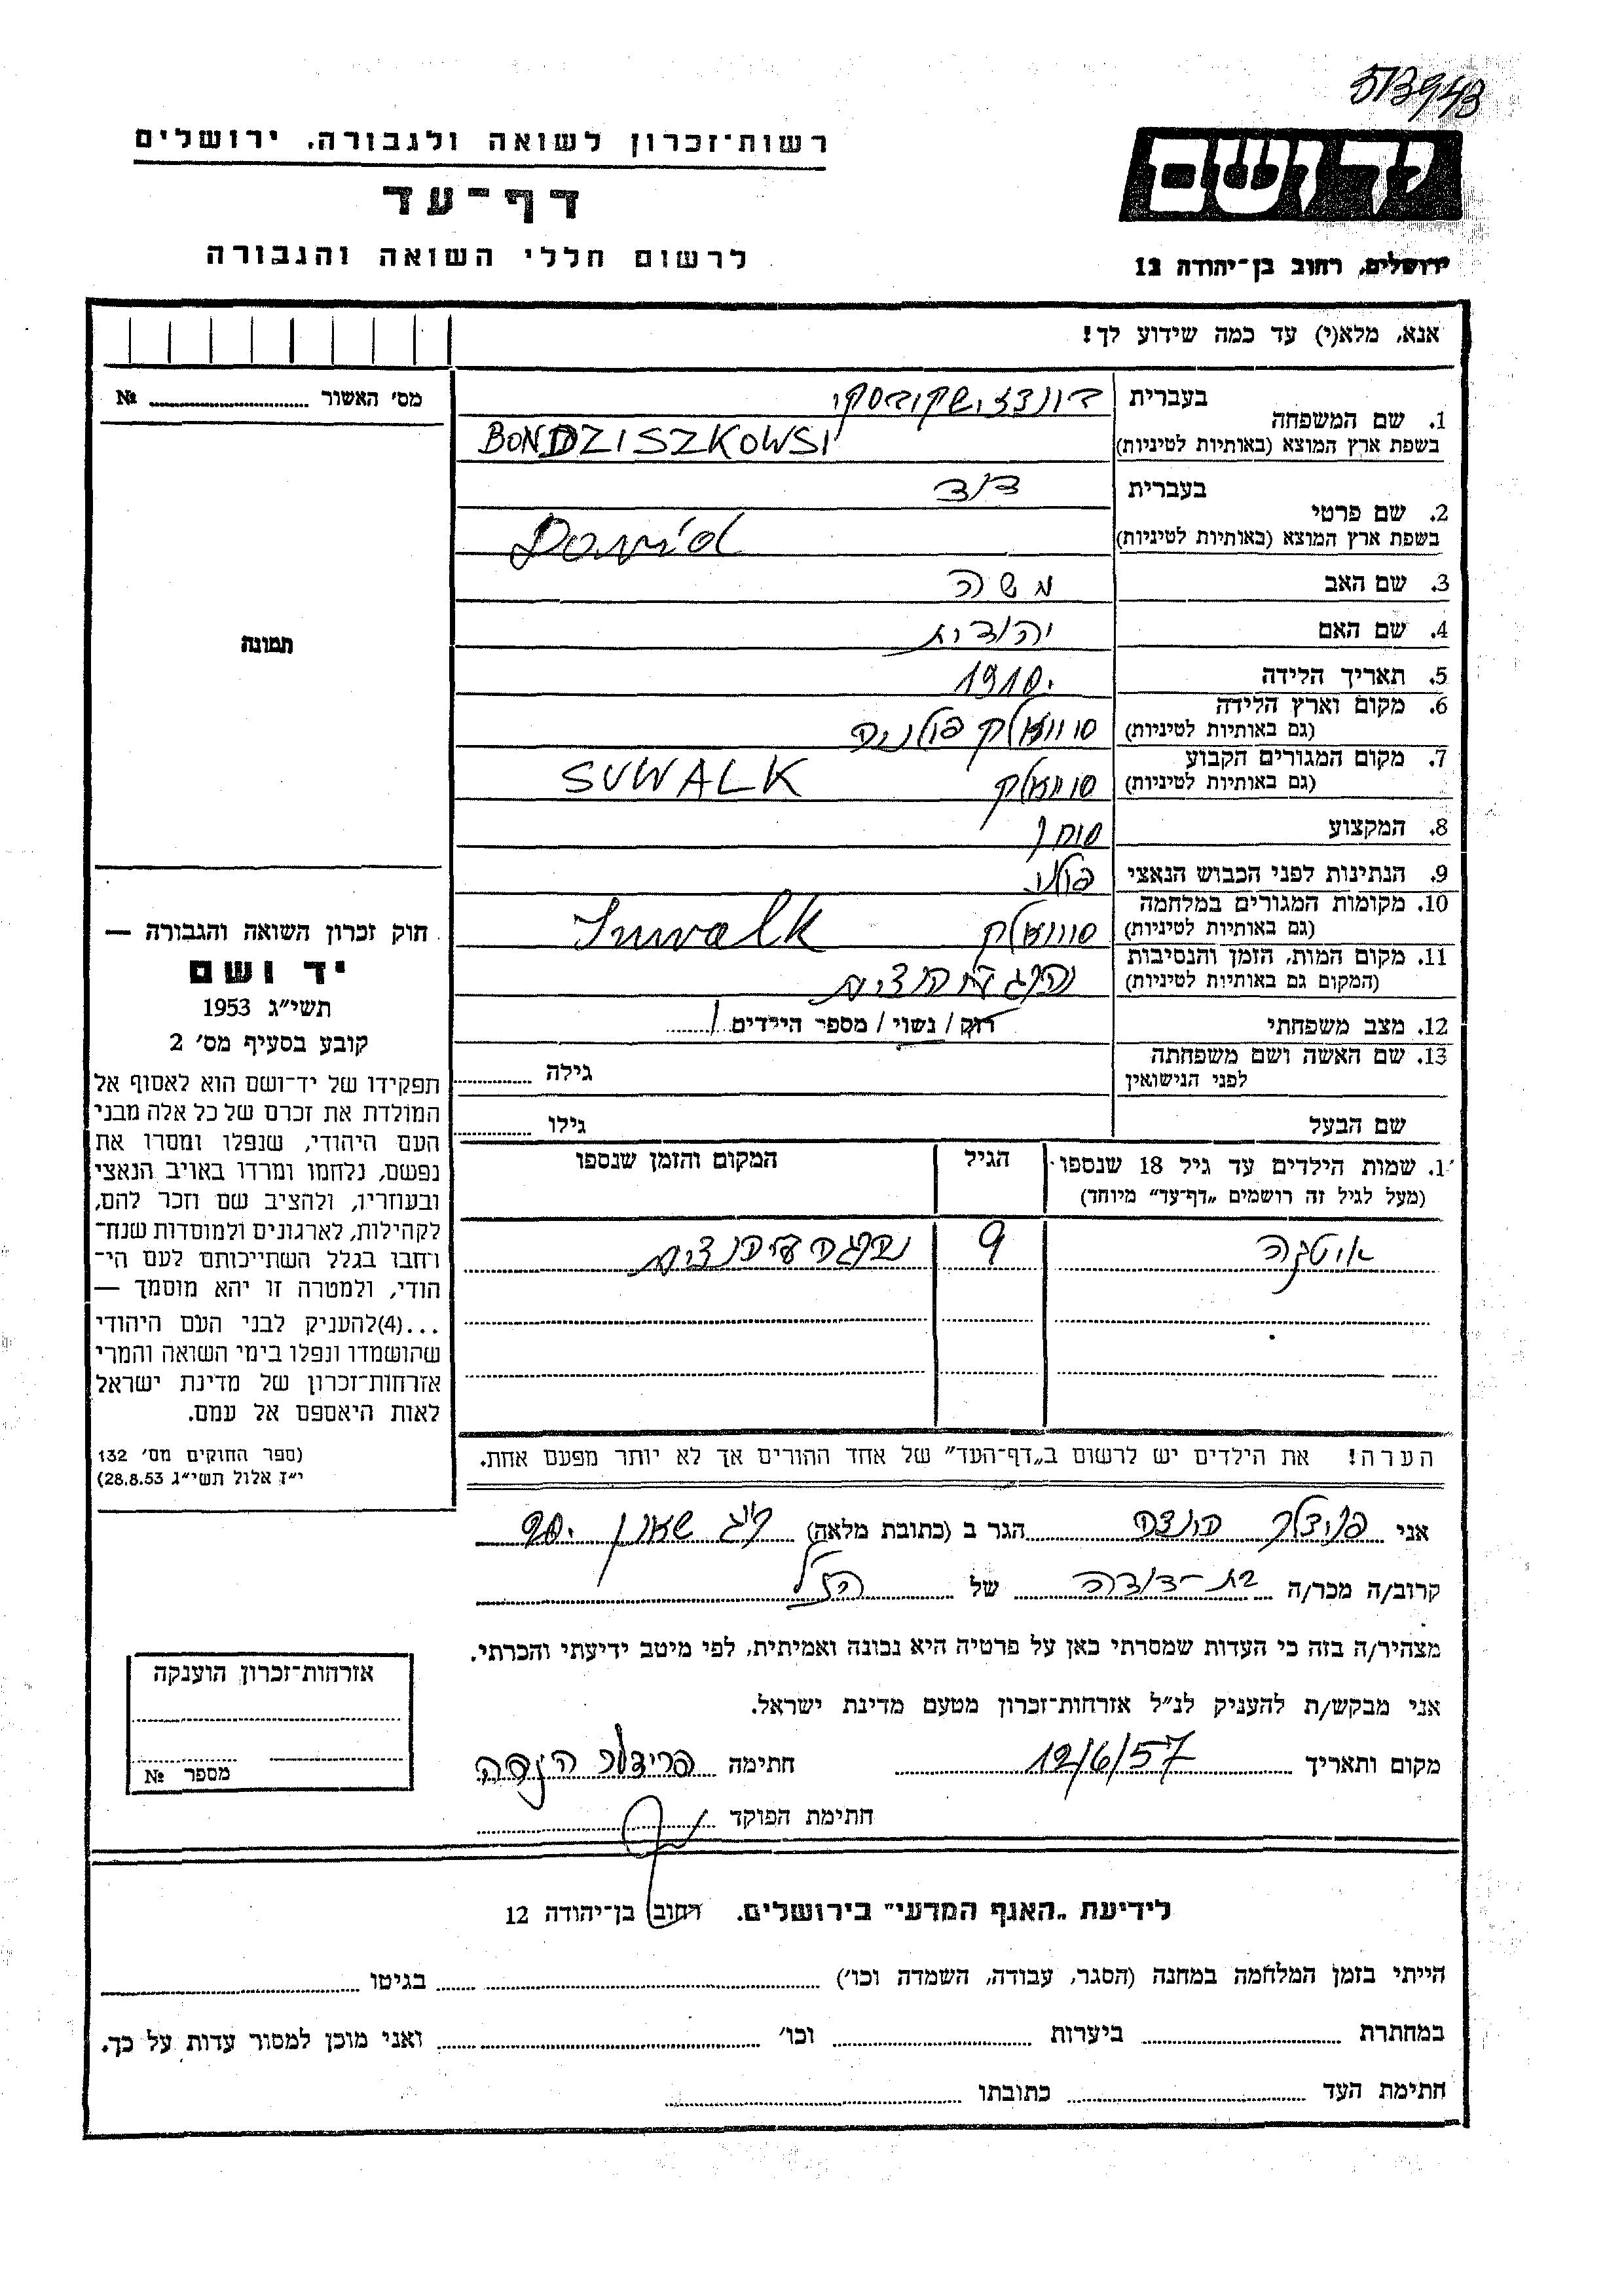 513943
רשות־זכרון לשואה ולגבורה. ירושלים
דף־עד
לרשום חללי השואה והגבורה
יד ושם
ירושלים, רחוב בן־יהודה 12
אנא, מלא(י) עד כמה שידוע לך!
מס' האשור № 
1. שם המשפחה
בעברית בונדזישקובסקי
בשפת ארץ המוצא (באותיות לטיניות) BONDZISZKOWSI
2. שם פרטי
בעברית דוד
בשפת ארץ המוצא (באותיות לטיניות) Dawid
3. שם האב משה
4. שם האם יהודית
5. תאריך הלידה 1910.
6. מקום וארץ הלידה סווואלק פולניה
(גם באותיות לטיניות)
7. מקום המגורים הקבוע סוואלק SUWALK
(גם באותיות לטיניות)
8. המקצוע סוחר
9. הנתינות לפני הכבוש הנאצי פולני
10. מקומות המגורים במלחמה סוואלק Suwalk
(גם באותיות לטיניות)
11. מקום המות, הזמן והנסיבות נהרג
(המקום גם באותיות לטיניות)
12. מצב משפחתי רוק / נשוי / מספר הילדים 1
13. שם האשה ושם משפחתה
לפני הנישואין
גילה
שם הבעל גילו
1. שמות הילדים עד גיל 18 שנספו
(מעל לגיל זה רושמים „דף־עד" מיוחד)
הגיל
המקום והזמן שנספו
איטקה 9
הערה! את הילדים יש לרשום ב„דף־העד" של אחד ההורים אך לא יותר מפעם אחת.
תמונה
חוק זכרון השואה והגבורה —
יד ושם
תשי״ג 1953
קובע בסעיף מס' 2
תפקידו של יד־ושם הוא לאסוף אל
המולדת את זכרם של כל אלה מבני
העם היהודי, שנפלו ומסרו את
נפשם, נלחמו ומרדו באויב הנאצי
ובעוזריו, ולהציב שם וזכר להם,
לקהילות, לארגונים ולמוסדות שנח־
רבו בגלל השתייכותם לעם הי־
הודי, ולמטרה זו יהא מוסמך —
...(4)להעניק לבני העם היהודי
שהושמדו ונפלו בימי השואה והמרי
אזרחות־זכרון של מדינת ישראל
לאות היאספם אל עמם.
(ספר החוקים מס' 132
י״ז אלול תשי״ג 28.8.53)
אני פרידלר הנדה הגר ב (כתובת מלאה)
קרוב/ה מכר/ה בת-דודה של הנ״ל
מצהיר/ה בזה כי העדות שמסרתי כאן על פרטיה היא נכונה ואמיתית, לפי מיטב ידיעתי והכרתי.
אני מבקש/ת להעניק לנ״ל אזרחות־זכרון מטעם מדינת ישראל.
מקום ותאריך 12/6/57 חתימה פרידלר הנדה
חתימת הפוקד
אזרחות־זכרון הוענקה
מספר №
לידיעת „האגף המדעי" בירושלים. רחוב בן־יהודה 12
הייתי בזמן המלחמה במחנה (הסגר, עבודה, השמדה וכו') בגיטו
במחתרת ביערות וכו' ואני מוכן למסור עדות על כך.
חתימת העד כתובתו